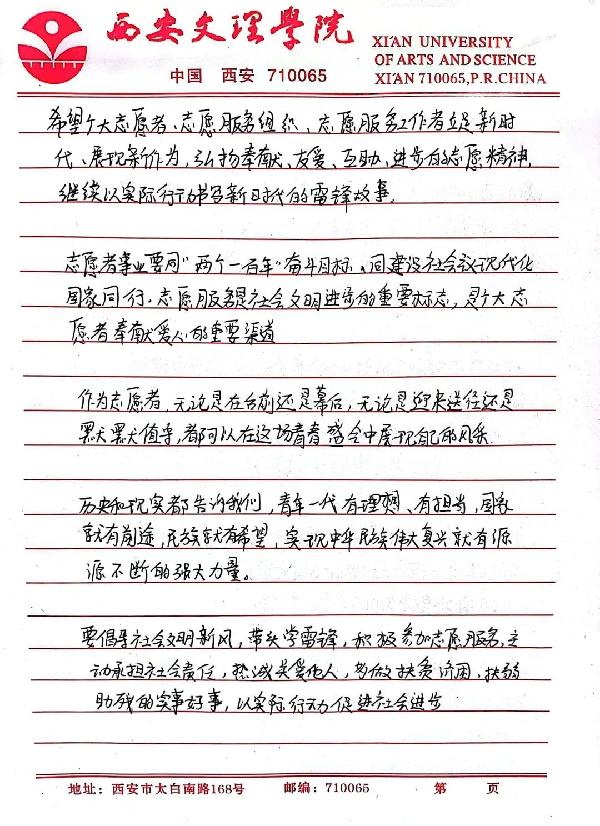 西安文理学院
中国 西安 710065
XI'AN UNIVERSITY
OF ARTS AND SCIENCE
XI'AN 710065, P.R.CHINA
希望广大志愿者、志愿服务组织、志愿服务工作者立足新时
代、展现新作为，弘扬奉献、友爱、互助、进步的志愿精神，
继续以实际行动书写新时代的雷锋故事。
志愿者事业要同"两个一百年"奋斗目标、同建设社会主义现代化
国家同行。志愿服务是社会文明进步的重要标志，是广大志
愿者奉献爱心的重要渠道
作为志愿者，无论是在台前还是幕后，无论是迎来送往还是
默默值守，都可以在这场青春盛会中展现自己的风采
历史和现实都告诉我们，青年一代有理想、有担当，国家
就有前途，民族就有希望，实现中华民族伟大复兴就有源
源不断的强大力量。
要倡导社会文明新风，带头学雷锋，积极参加志愿服务，主
动承担社会责任，热诚关爱他人，多做扶贫济困、扶弱
助残的实事好事，以实际行动促进社会进步
地址：西安市太白南路168号 邮编：710065 第 页